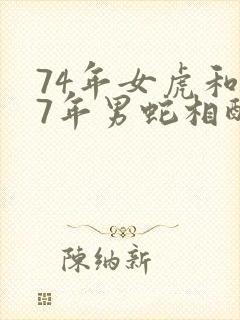 74年女虎和
7年男蛇相
陳纳新